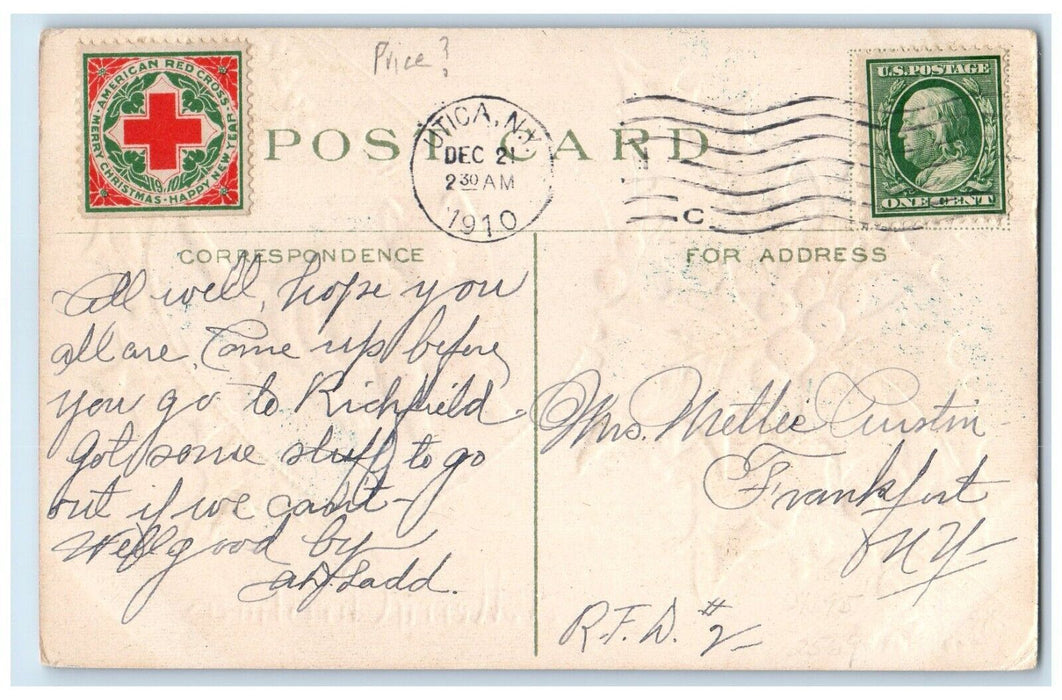 Price?
AMERICAN RED CROSS
MERRY CHRISTMAS · HAPPY NEW YEAR
1910
POST CARD
UTICA, N.Y.
DEC 21
2 30 AM
1910
C
U.S. POSTAGE
ONE CENT
CORRESPONDENCE
FOR ADDRESS
All well, hope you
all are. Come up before
you go to Richfield.
Got some stuff to go
out if we can't
Well good by
Ladd.
Mrs. Mettie Austin
Frankfort
N.Y.
R.F.D. #2